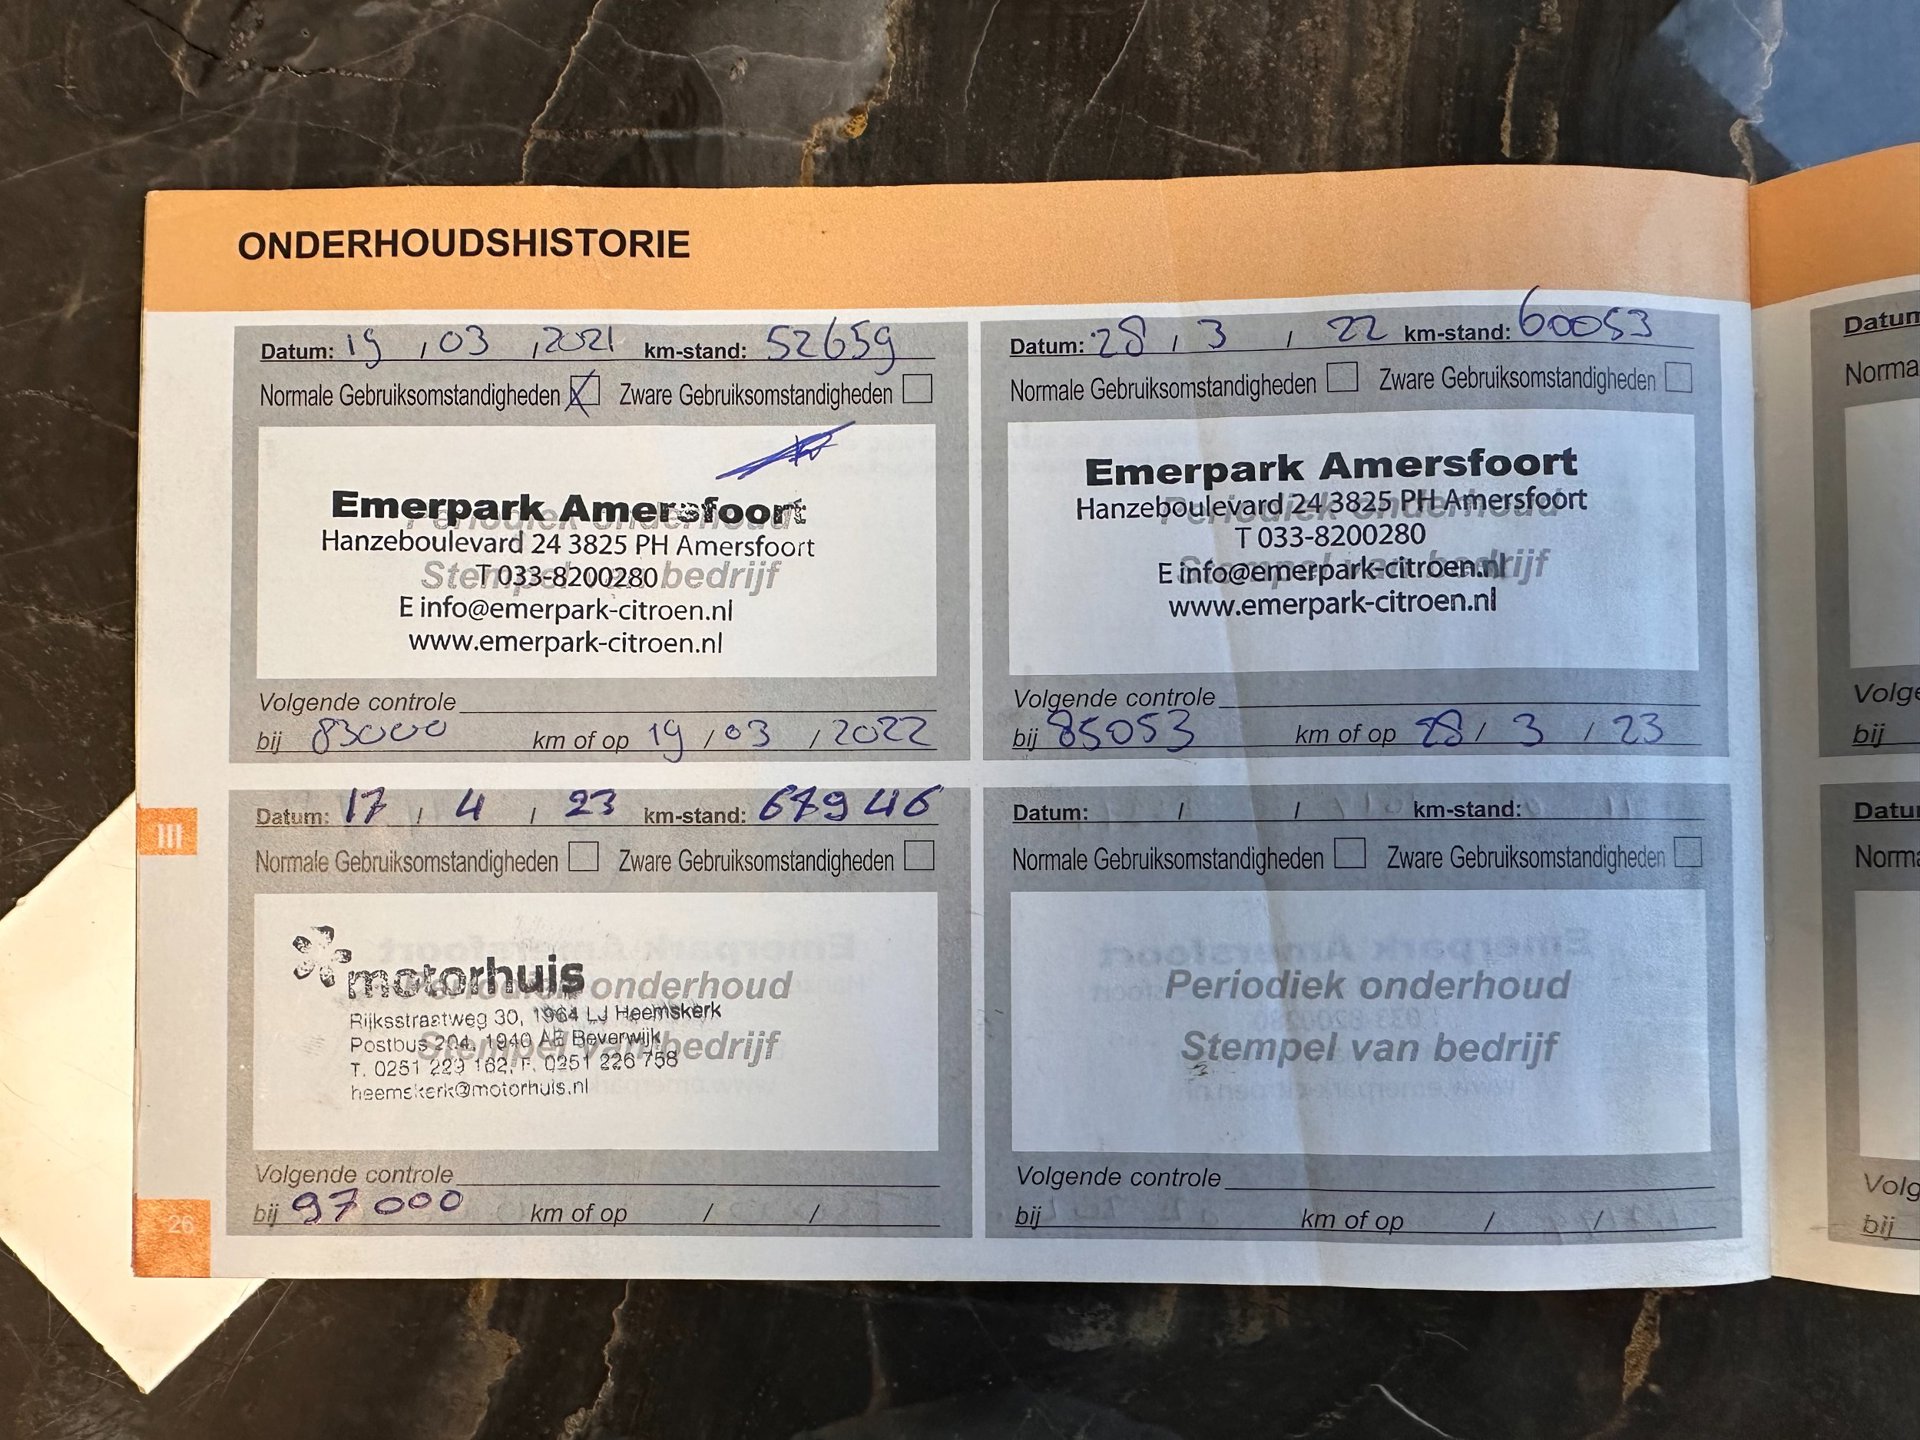 ONDERHOUDSHISTORIE
Datum: 19 / 03 / 2021 km-stand: 52659
Normale Gebruiksomstandigheden Zware Gebruiksomstandigheden
Periodiek onderhoud
Stempel van bedrijf
Emerpark Amersfoort
Hanzeboulevard 24 3825 PH Amersfoort
T 033-8200280
E info@emerpark-citroen.nl
www.emerpark-citroen.nl
Volgende controle
bij 83000 km of op 19 / 03 / 2022
Datum: 28 / 3 / 22 km-stand: 60053
Normale Gebruiksomstandigheden Zware Gebruiksomstandigheden
Periodiek onderhoud
Stempel van bedrijf
Emerpark Amersfoort
Hanzeboulevard 24 3825 PH Amersfoort
T 033-8200280
E info@emerpark-citroen.nl
www.emerpark-citroen.nl
Volgende controle
bij 85053 km of op 28 / 3 / 23
III
Datum: 17 / 4 / 23 km-stand: 67946
Normale Gebruiksomstandigheden Zware Gebruiksomstandigheden
Periodiek onderhoud
Stempel van bedrijf
motorhuis
Rijksstraatweg 30, 1964 LJ Heemskerk
Postbus 204, 1940 AE Beverwijk
T. 0251 229 162, F. 0251 226 758
heemskerk@motorhuis.nl
Volgende controle
bij 97000 km of op / /
Datum: / / km-stand:
Normale Gebruiksomstandigheden Zware Gebruiksomstandigheden
Periodiek onderhoud
Stempel van bedrijf
Volgende controle
bij km of op / /
26
Datum
Norma
Volge
bij
Datu
Norma
Volg
bij